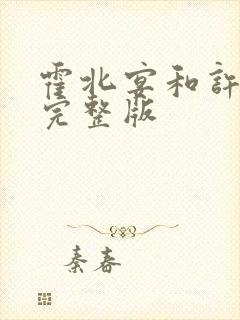 霍北宴和許
完整版
秦春